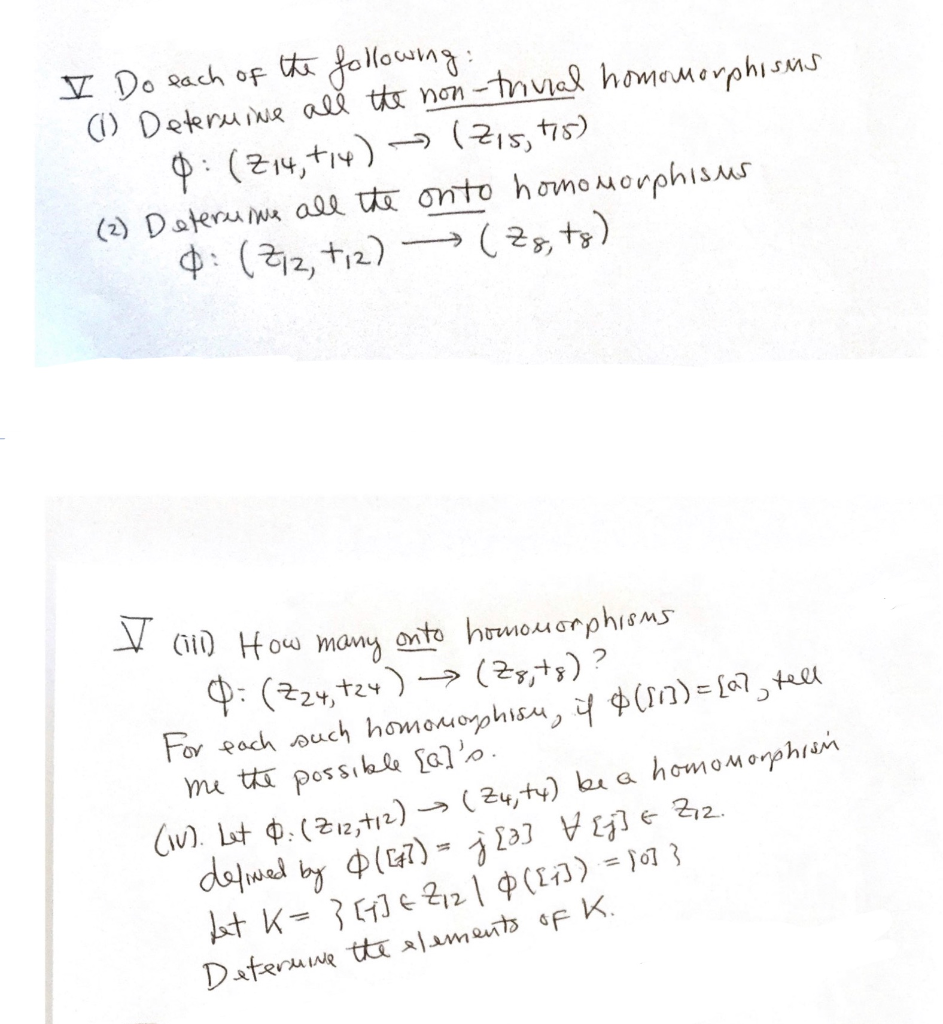 V Do each of the following:
(1) Determine all the non-trivial homomorphisms
ϕ: (Z14, +14) → (Z15, +15)
(2) Determine all the onto homomorphisms
ϕ: (Z12, +12) → (Z8, +8)
V (iii) How many onto homomorphisms
ϕ: (Z24, +24) → (Z8, +8)?
For each such homomorphism, if ϕ([1]) = [a], tell
me the possible [a]'s.
(iv). Let ϕ: (Z12, +12) → (Z4, +4) be a homomorphism
defined by ϕ([j]) = j[3] ∀ [j] ∈ Z12.
Let K = { [j] ∈ Z12 | ϕ([j]) = [0] }
Determine the elements of K.